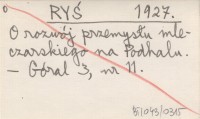 RYŚ 1927.
O rozwój przemysłu mle-
czarskiego na Podhalu.
– Góral 3, nr 11.